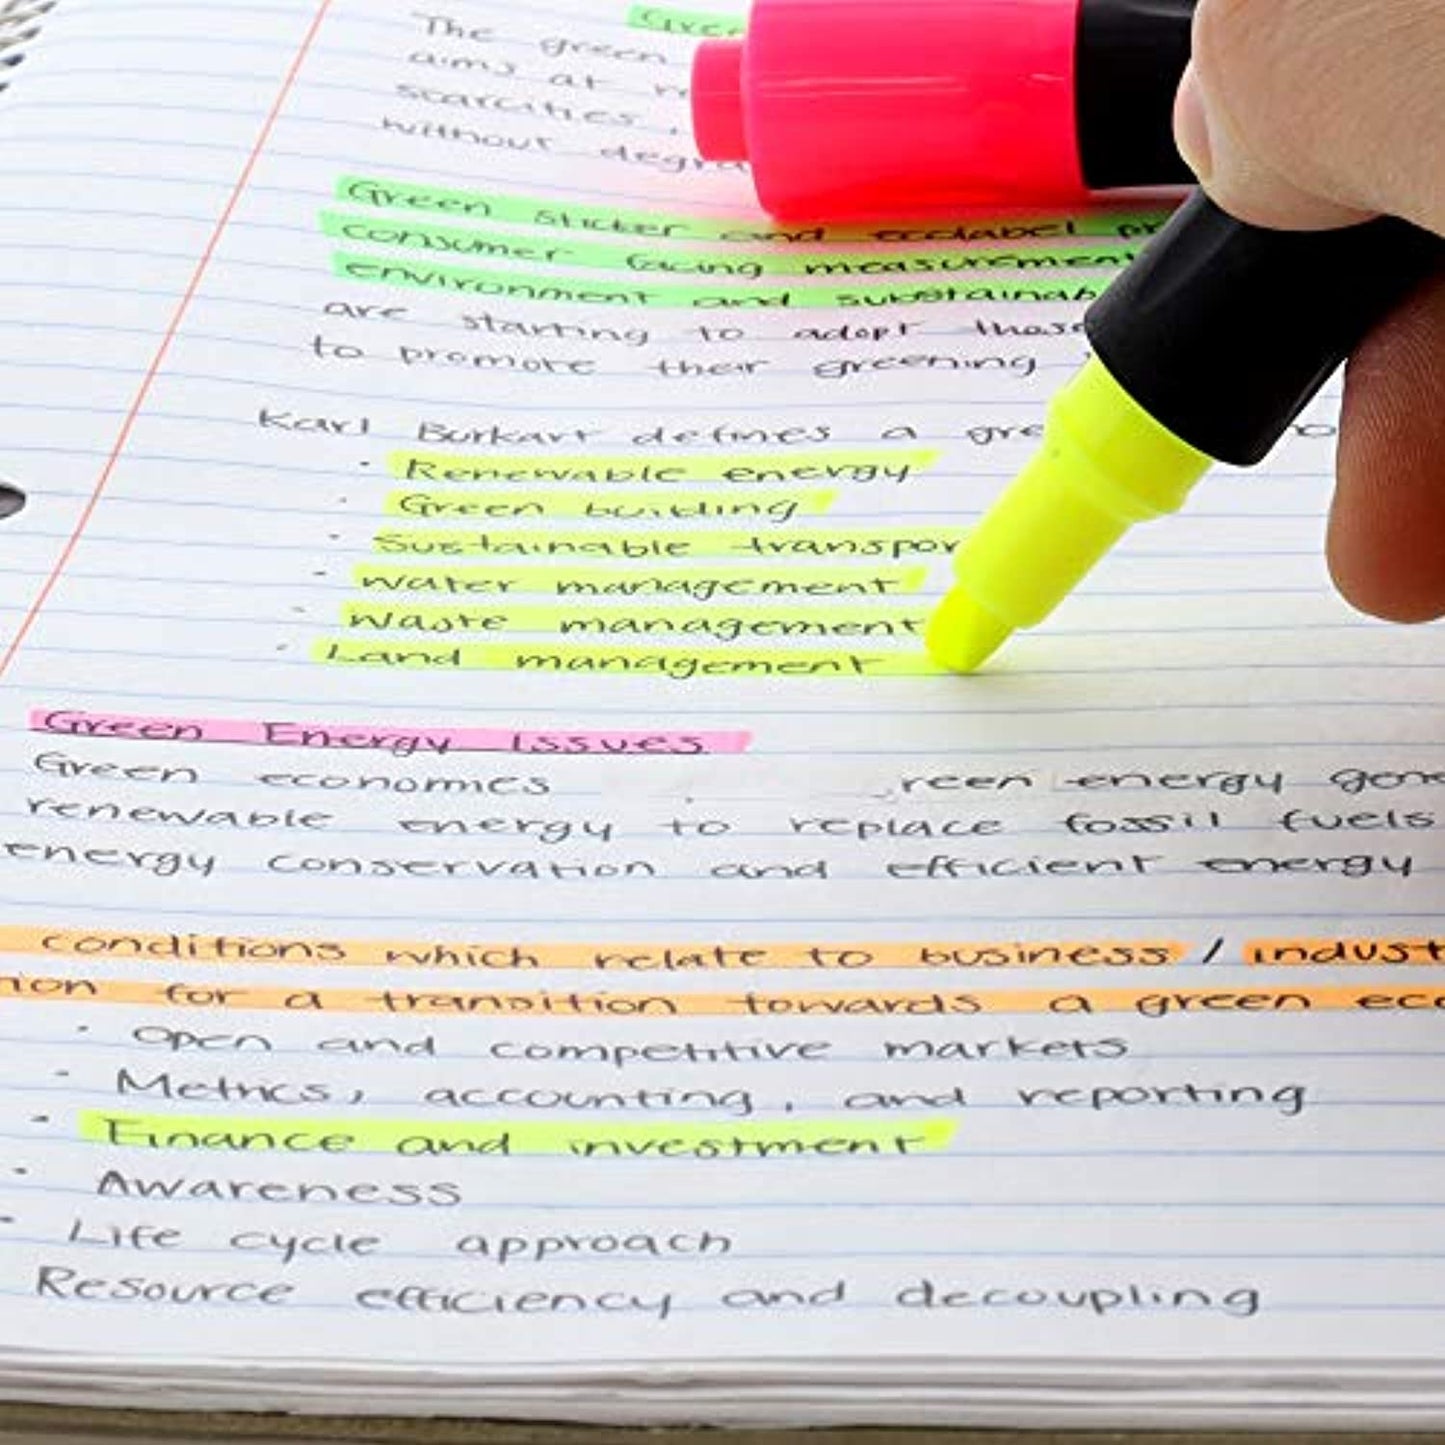 The green
aims at
scarcities,
without degra
Green sticker and ecolabel pr
consumer facing measurement
environment and substainab
are starting to adopt these
to promote their greening
Karl Burkart defines a gre
· Renewable energy
· Green building
· Sustainable transpor
· Water management
· Waste management
· Land management
Green Energy Issues
Green economies reen energy gene
renewable energy to replace fossil fuels
energy conservation and efficient energy
conditions which relate to business / indust
for a transition towards a green eco
· Open and competitive markets
- Metrics, accounting, and reporting
· Finance and investment
· Awareness
- Life cycle approach
Resource efficiency and decoupling